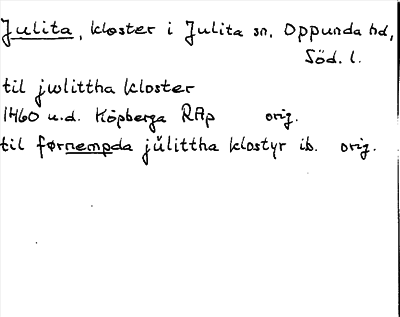 Julita, kloster i Julita sn, Oppunda hd,
Söd. l.
til jwlittha kloster
1460 u.d. Köpberga RAp orig.
til førnempda jůlittha klostyr ib. orig.